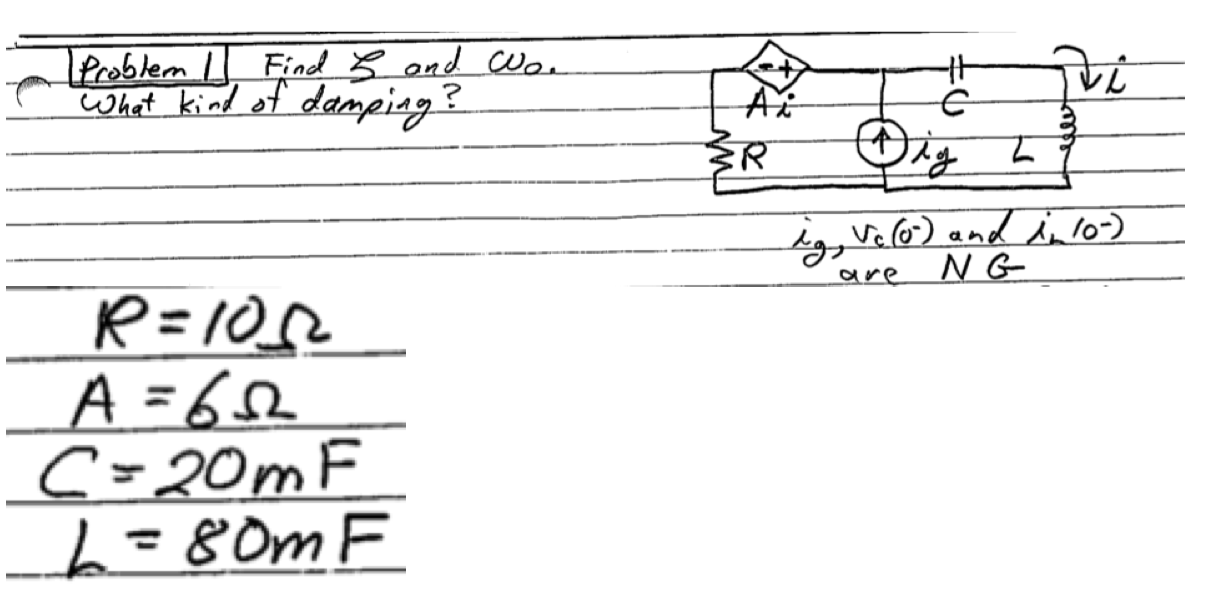 Problem 1 Find ζ and ω₀.
What kind of damping?
- +
Ai
C
i
R
ig
L
ig, Vc(0-) and iL(0-)
are NG
R = 10Ω
A = 6Ω
C = 20mF
L = 80mF